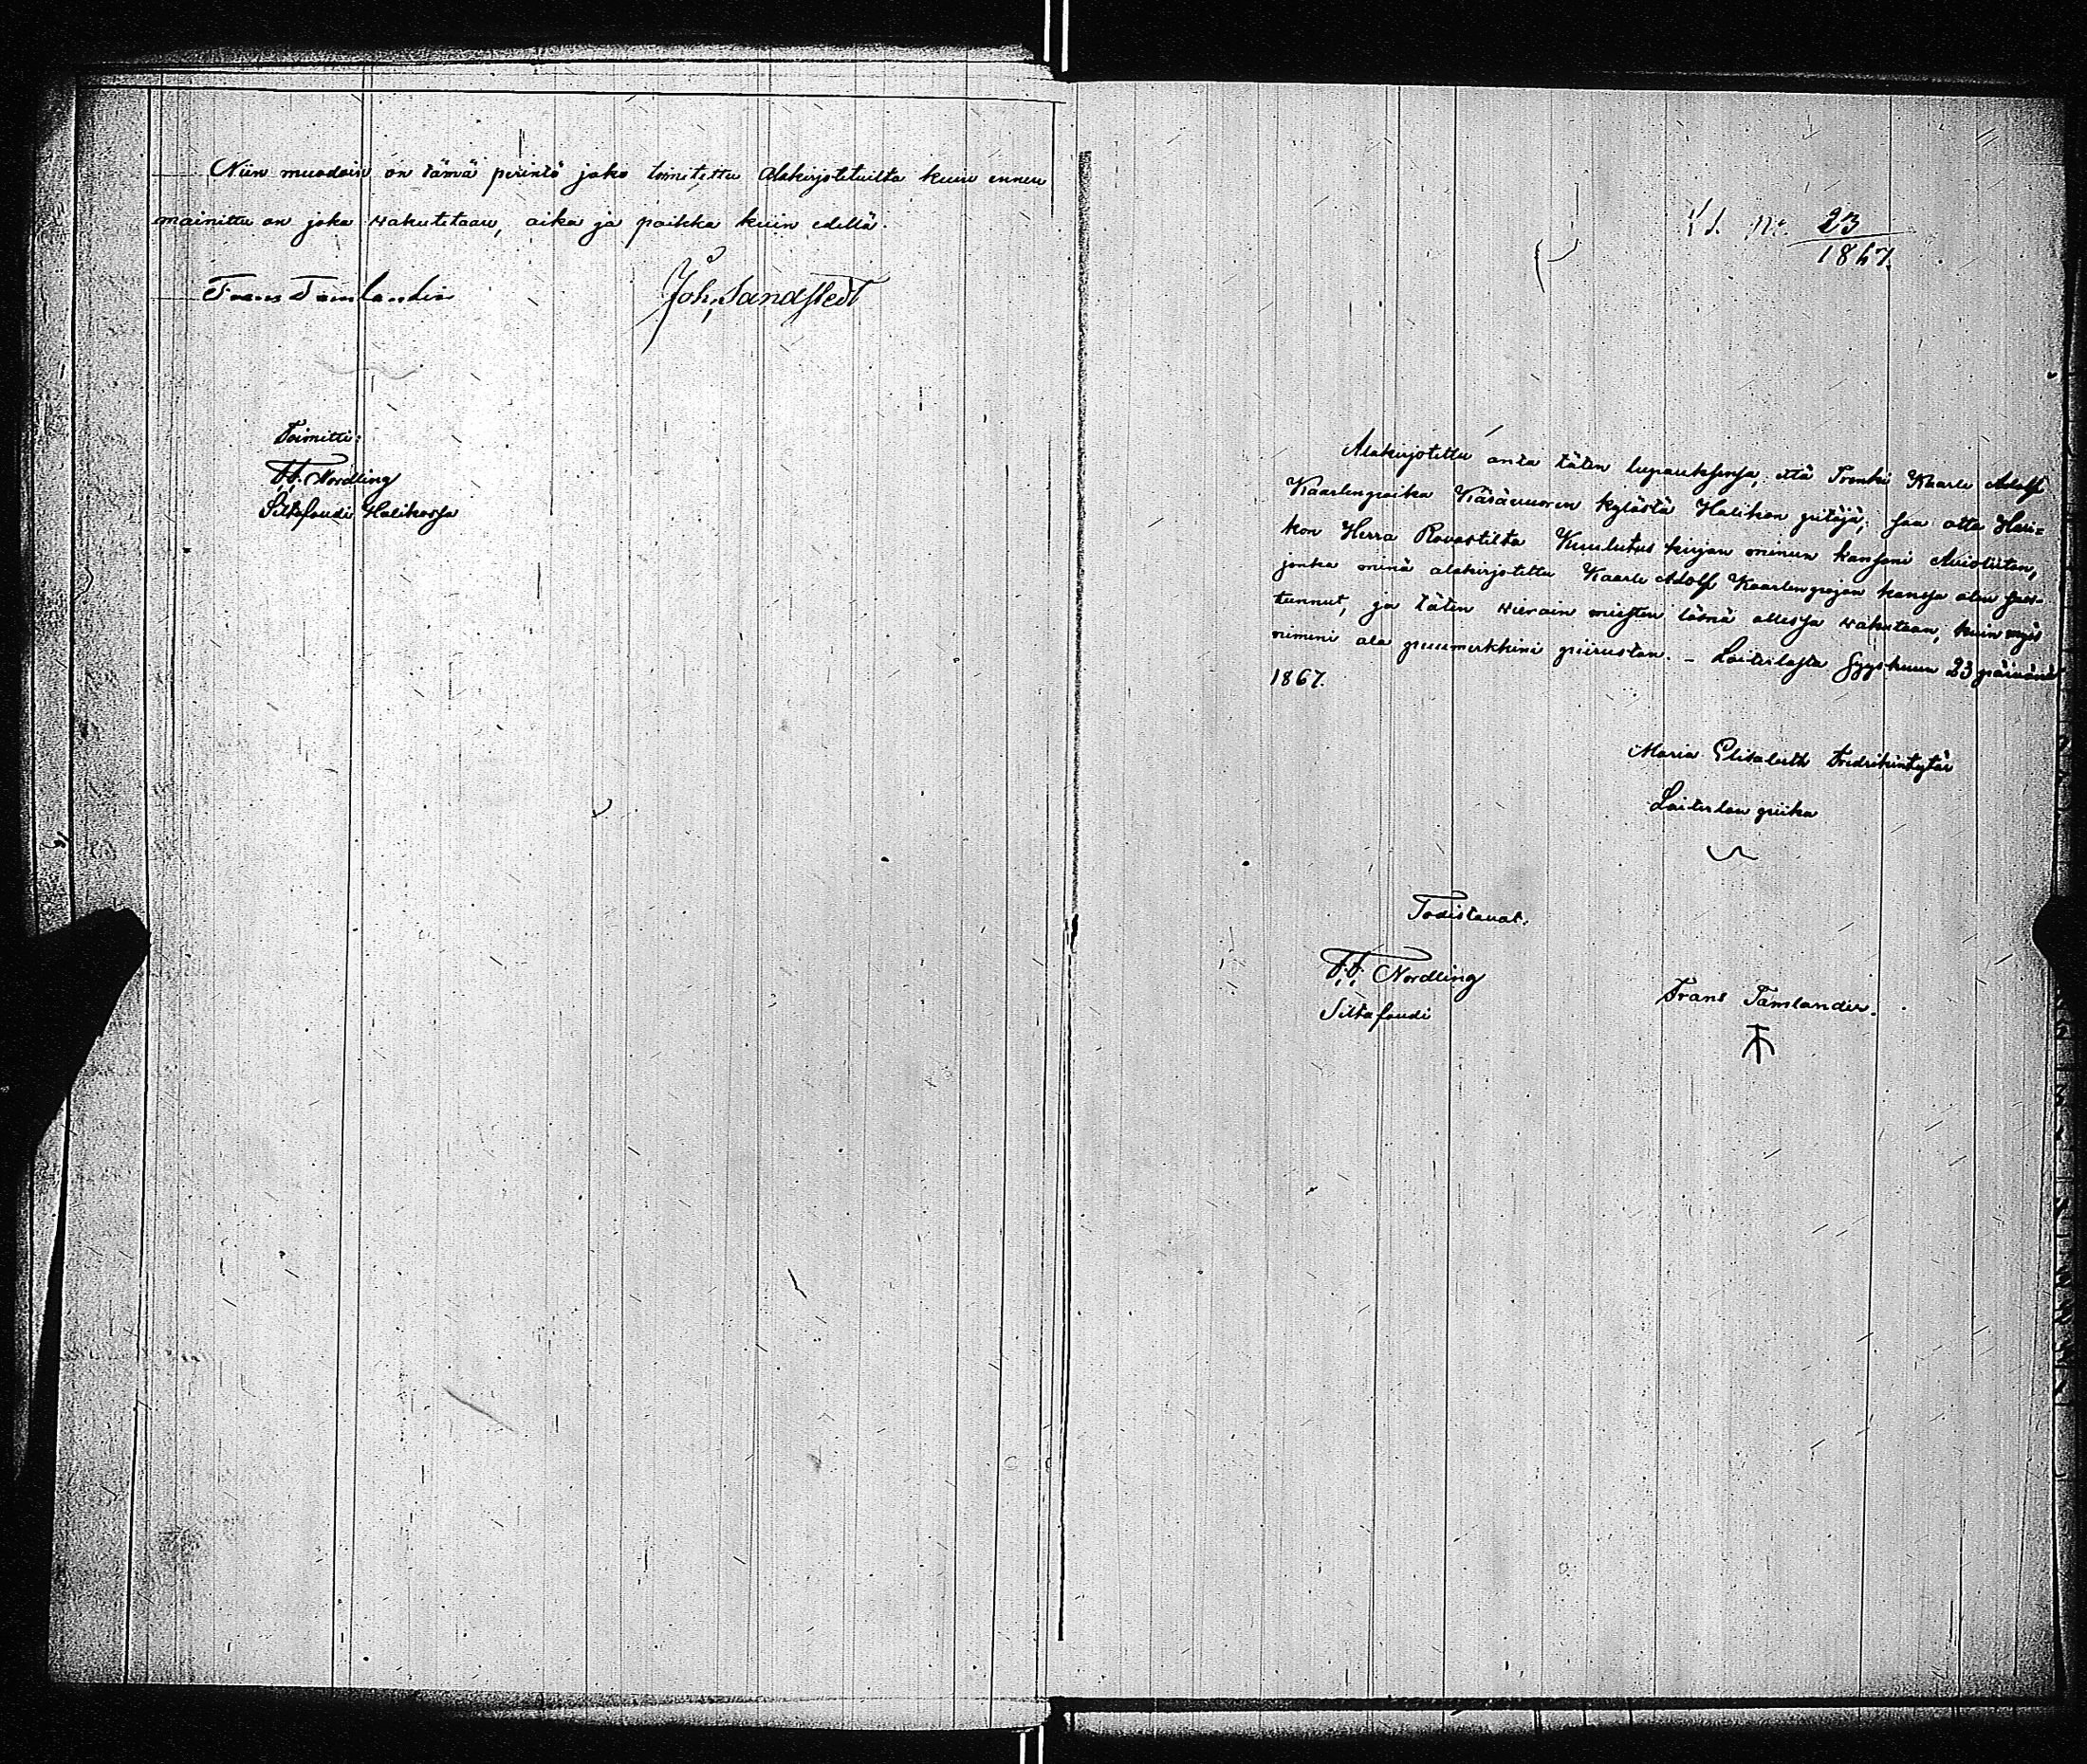 Niin muodoin on tämä perintö jako toimitettu Alakirjotetuilta kuin ennen
mainittu on joka wakutetaan, aika ja paikka kuin edellä.
Frans Tamlander
Joh, Sandstedt
Toimitti:
F. F. Nordling
Siltafoudi Halikossa
No 23
1867.
Alakirjotettu anta täten lupauksensa, että Trenki Kaarle Adolf
Kaarlenpoika Käsävuoren kylästä Halikon pitäjä, saa otta Hali=
kon Herra Rovastilta Kuulutus kirjan minun kansani Avioliiten,
jonka minä alakirjotettu Kaarle Adolf Kaarlenpojan kanssa olen suos-
tunnut, ja täten wierain miesten läsnä ollessa wakutaan, kuin myös
nimeni ala puumerkkini piirustan. - Laiterlasta Syyskuun 23 päivänä
1867.
Maria Elisabeth Fredrikintytär
Laiterlan piika
Todistavat.
F. F. Nordling
Siltafoudi
Frans Tamlander.